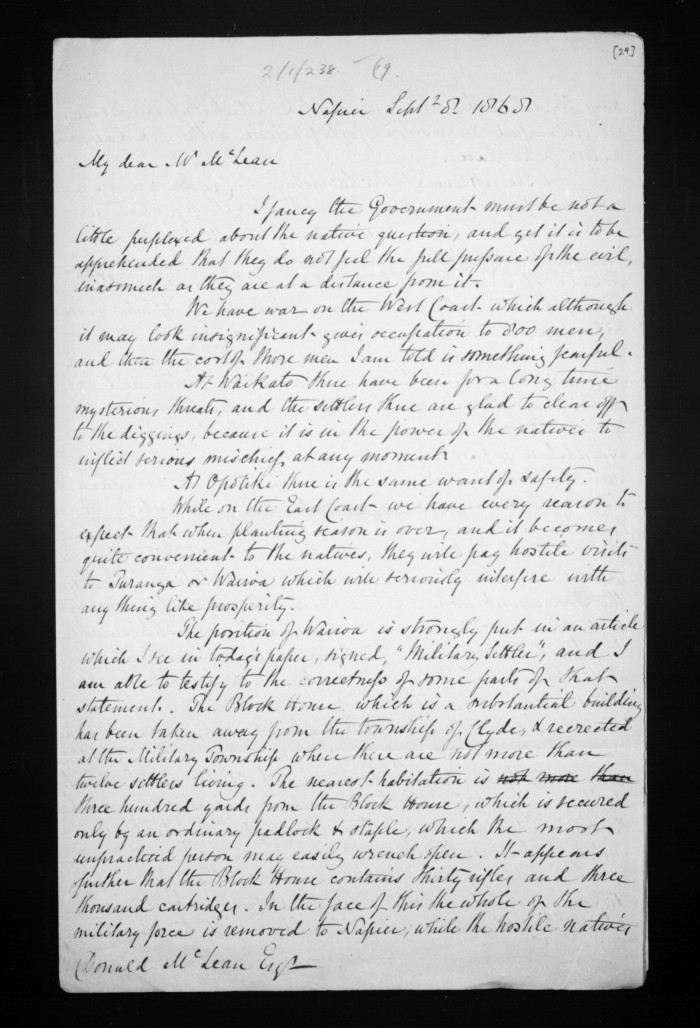 [29]
2/1/238. 69.
Napier Septr 8. 1868
My dear Mr McLean
I fancy the Government must be not a
little perplexed about the native question, and yet it is to be
apprehended that they do not feel the full pressure of the evil,
inasmuch as they are at a distance from it.
We have war on the West Coast which although
it may look insignificant gives occupation to 800 men,
and then the cost of those men I am told is something fearful.
At Waikato there have been for a long time
mysterious threats, and the settlers there are glad to clear off
to the diggings, because it is in the power of the natives to
inflict serious mischief at any moment
At Opotiki there is the same want of safety.
While on the East Coast we have every reason to
expect that when planting season is over, and it becomes
quite convenient to the natives, they will pay hostile visits
to Turanga or Wairoa which will seriously interfere with
any thing like prosperity.
The position of Wairoa is strongly put in an article
which I see in today's paper, signed, "Military Settler", and I
am able to testify to the correctness of some parts of that
statement. The Block House which is a substantial building
has been taken away from the township of Clyde, & reerected
at the Military Township where there are not more than
twelve settlers living. The nearest habitation is not more than
three hundred yards from the Block House, which is secured
only by an ordinary padlock & staple, which the most
unpracticed person may easily wrench open. It appears
further that the Block House contains thirty rifles and three
thousand cartridges. In the face of this the whole of the
military force is removed to Napier, while the hostile natives
Donald McLean Esqr